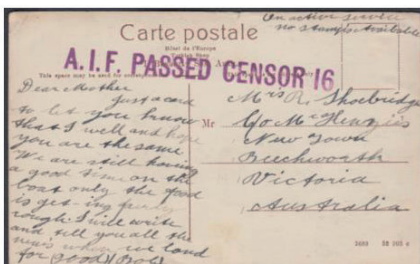 On active service
no stamps available
Carte postale
Hôtel de l'Europe
A.I.F. PASSED CENSOR 16
This space may be used for
Dear Mother
just a card
to let you know
that I well and hope
you are the same
We are still having
a good time on the
boat only the food
is get-ing
rough I will write
and tell you all the
news when we land
for good Bob
Mrs R. Shoebridge
Mc Kenzie's
New Town
Beechworth
Victoria
Australia